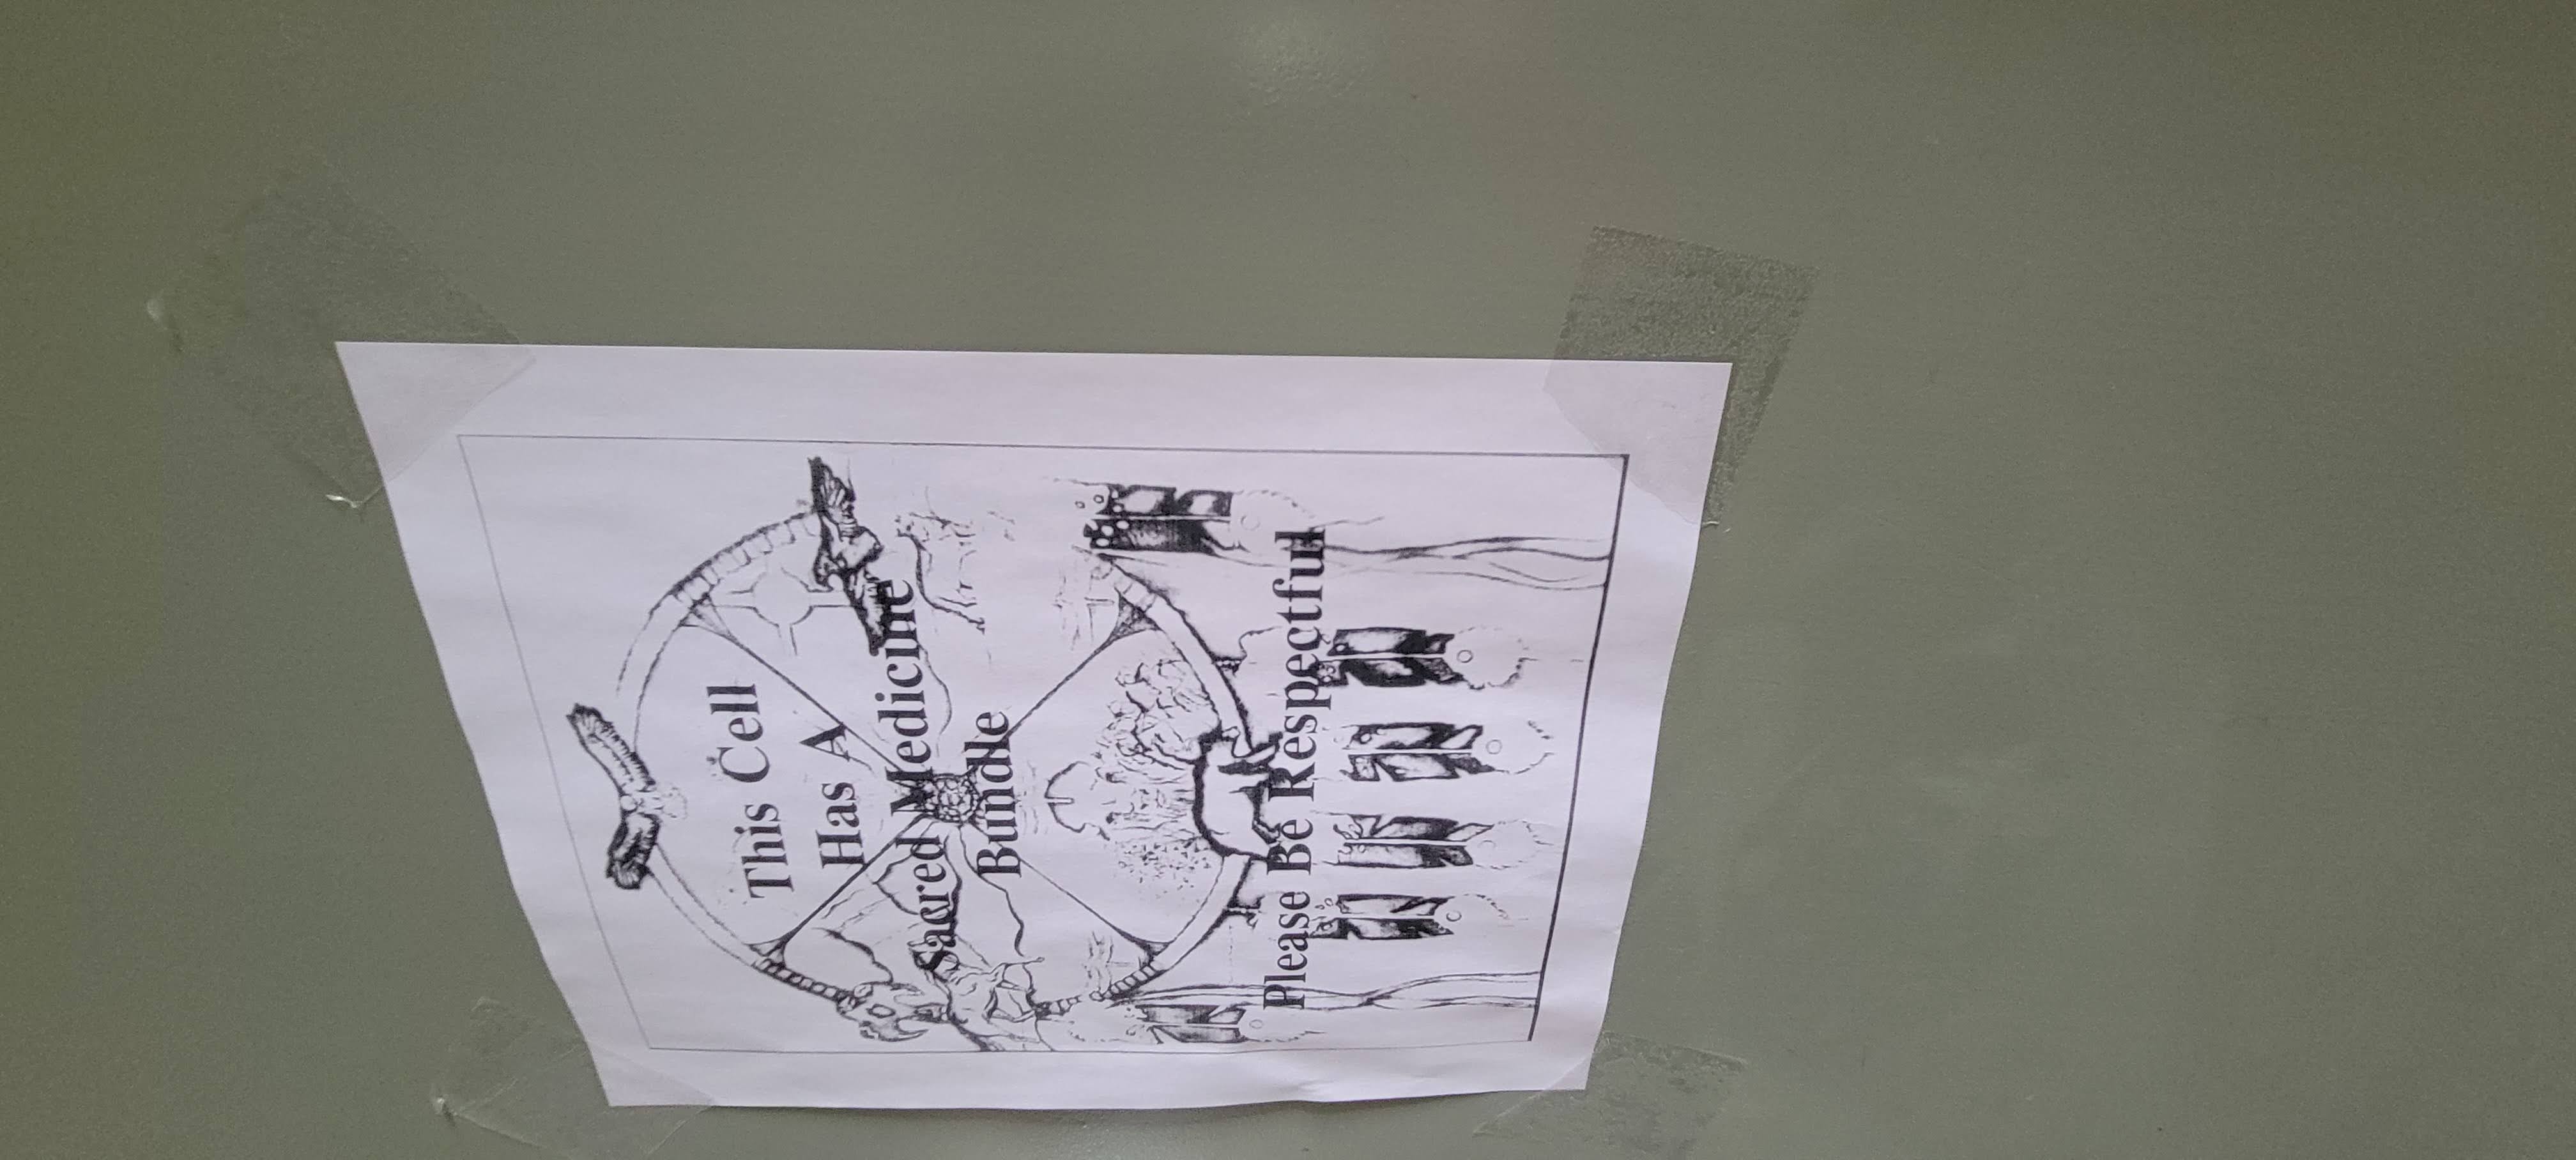 This Cell
Has A
Sacred Medicine
Bundle
Please Be Respectful